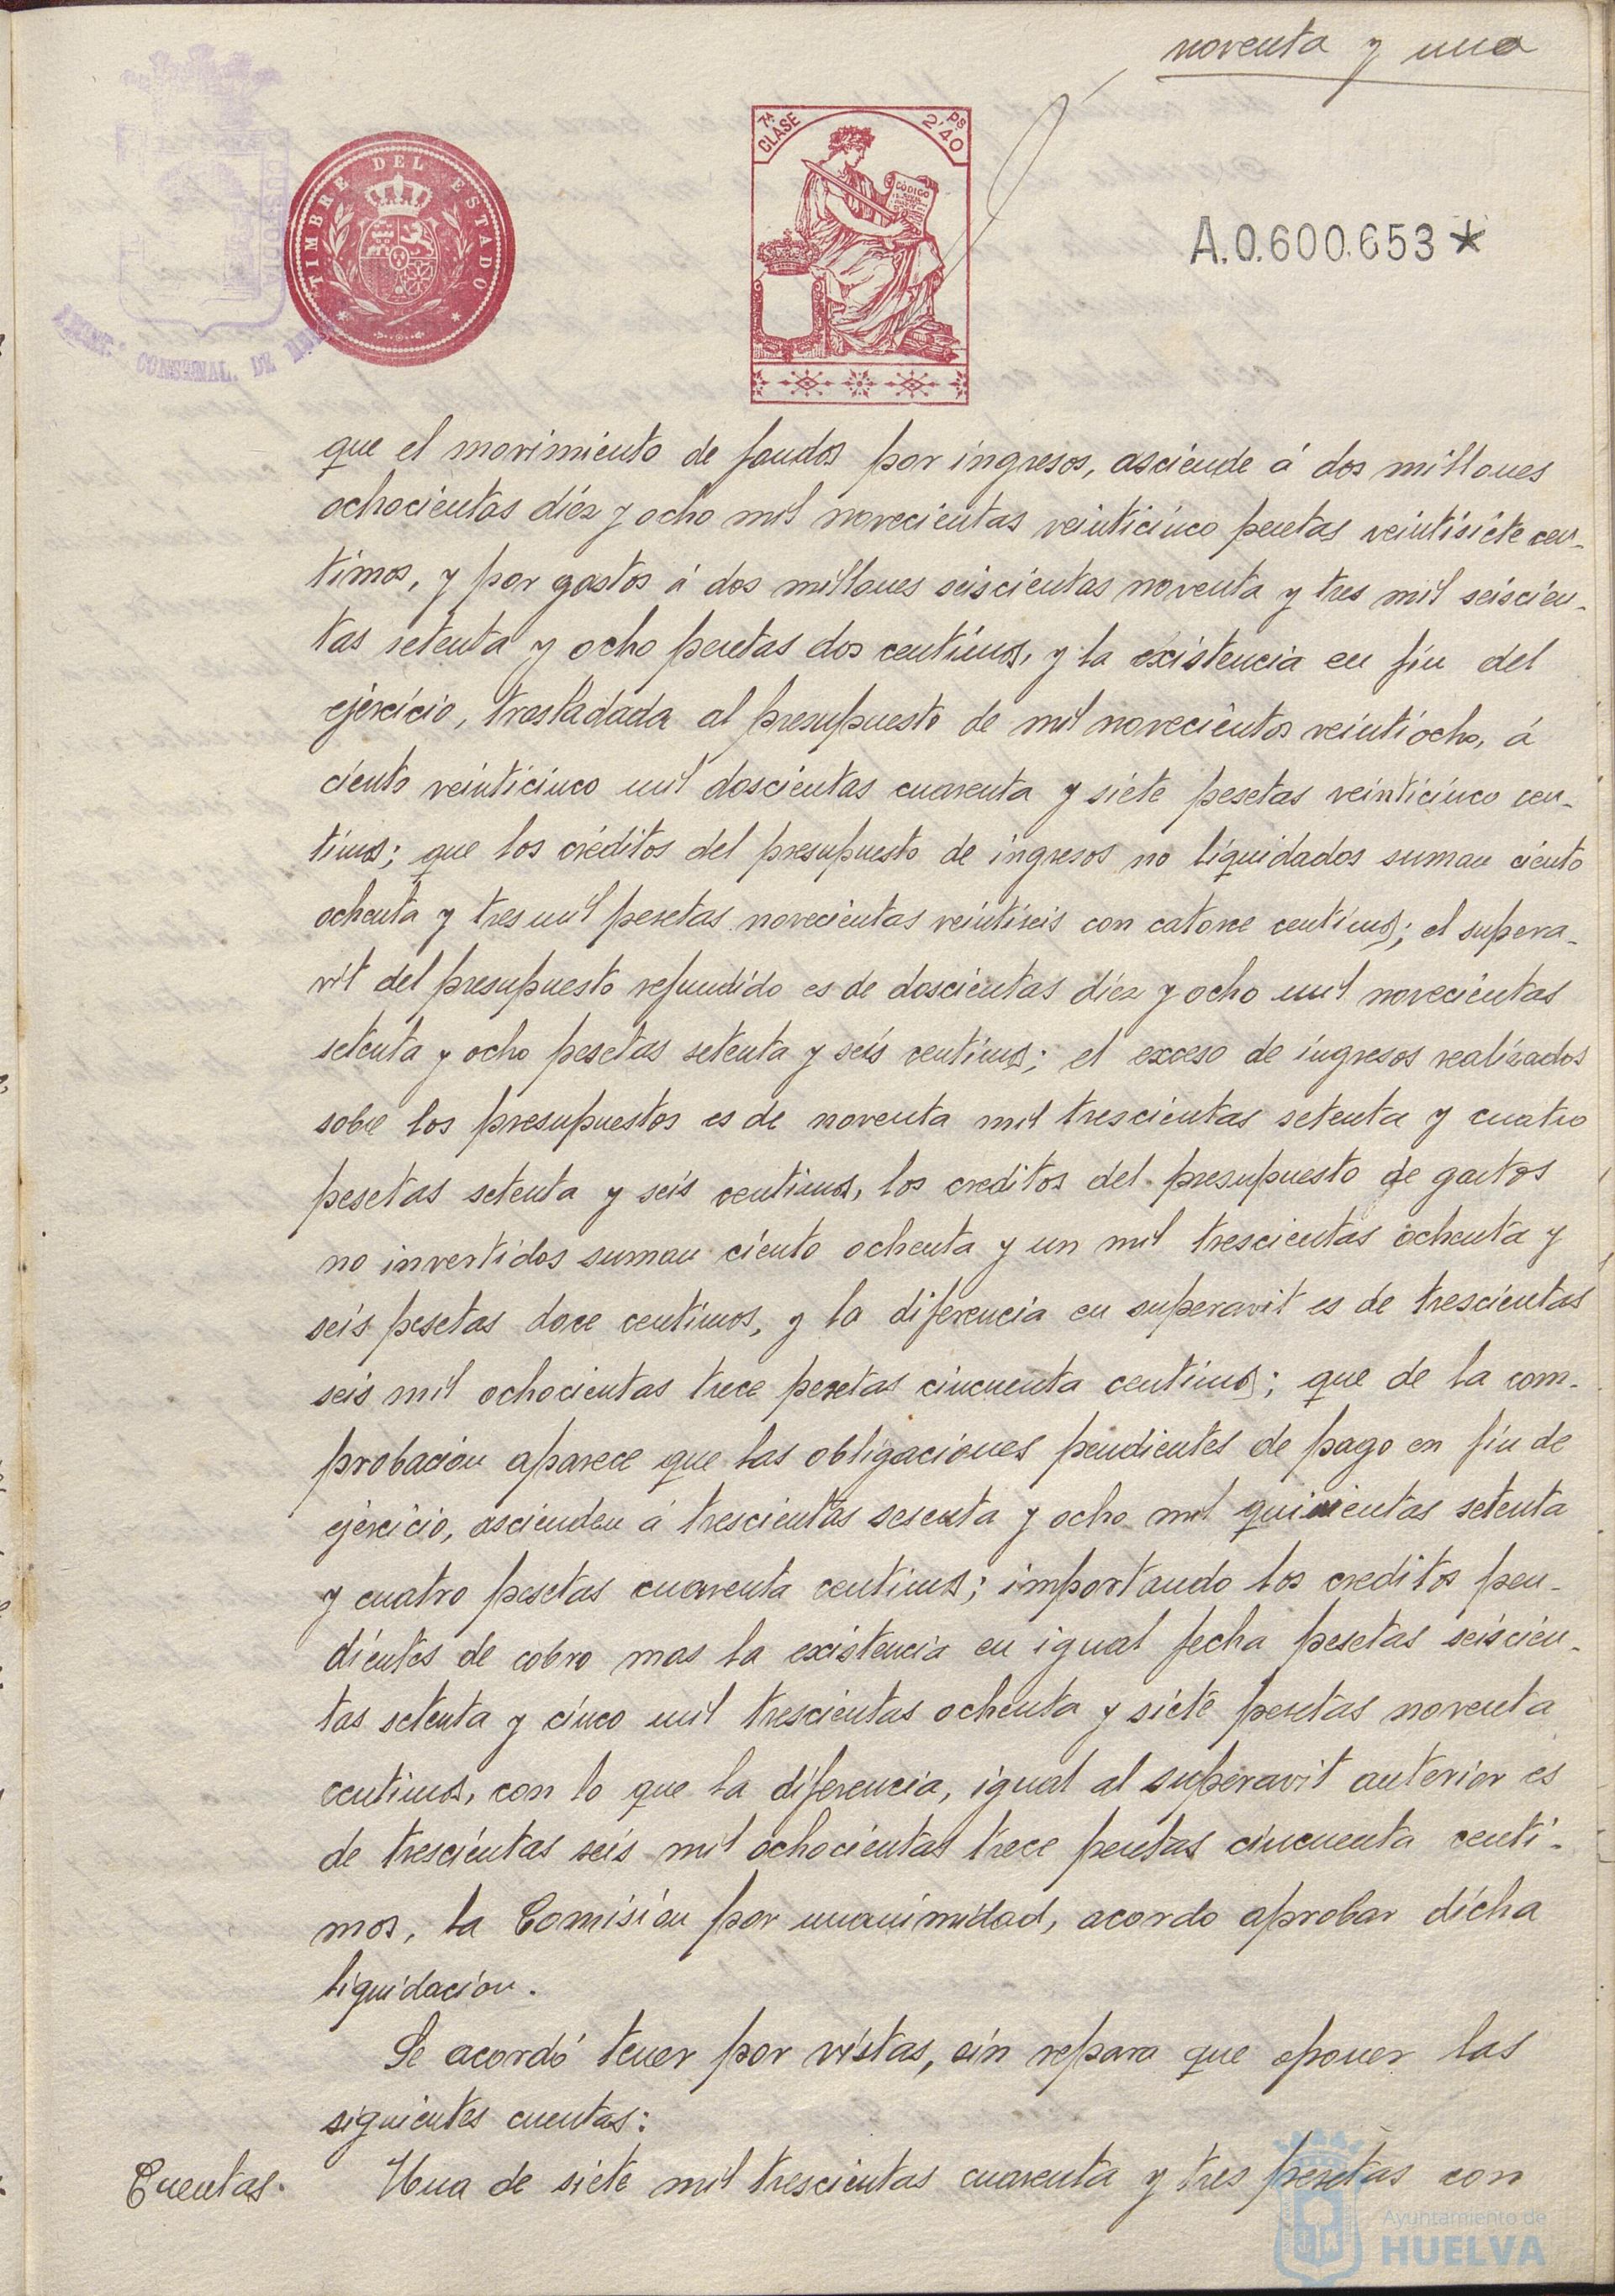 noventa y uno
7ª CLASE
2'40 PS
CÓDIGO
TIMBRE DEL ESTADO
A.0.600.653*
CONSTNAL. DE
que el movimiento de fondos por ingresos, asciende á dos millones
ochocientas diéz y ocho mil novecientas veinticinco pesetas veintisiete cen-
timos, y por gastos á dos millones seiscientas noventa y tres mil seiscien-
tas setenta y ocho pesetas dos centimos, y la existencia en fin del
ejercicio, trasladada al presupuesto de mil novecientos veintiocho, á
ciento veinticinco mil doscientas cuarenta y siete pesetas veinticinco cen-
timos; que los créditos del presupuesto de ingresos no liquidados suman ciento
ochenta y tres mil pesetas novecientas veintiseis con catorce centimos; el supera-
vit del presupuesto refundido es de doscientas diéz y ocho mil novecientas
setenta y ocho pesetas setenta y seis centimos; el exceso de ingresos realizados
sobre los presupuestos es de noventa mil trescientas setenta y cuatro
pesetas setenta y seis centimos, los creditos del presupuesto de gastos
no invertidos suman ciento ochenta y un mil trescientas ochenta y
seis pesetas doce centimos, y la diferencia en superavit es de trescientas
seis mil ochocientas trece pesetas cincuenta centimos; que de la com-
probación aparece que las obligaciones pendientes de pago en fin de
ejercicio, ascienden á trescientas sesenta y ocho mil quinientas setenta
y cuatro pesetas cuarenta centimos; importando los creditos pen-
dientes de cobro mas la existencia en igual fecha pesetas seiscien-
tas setenta y cinco mil trescientas ochenta y siete pesetas noventa
centimos, con lo que la diferencia, igual al superavit anterior es
de trescientas seis mil ochocientas trece pesetas cincuenta centi-
mos, la Comisión por unanimidad, acordo aprobar dicha
liquidacion.
Se acordó tener por vistas, sin reparo que oponer las
siguientes cuentas:
Cuentas. Una de siete mil trescientas cuarenta y tres pesetas con
Ayuntamiento de
HUELVA